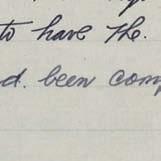 to have the.
d. been comp